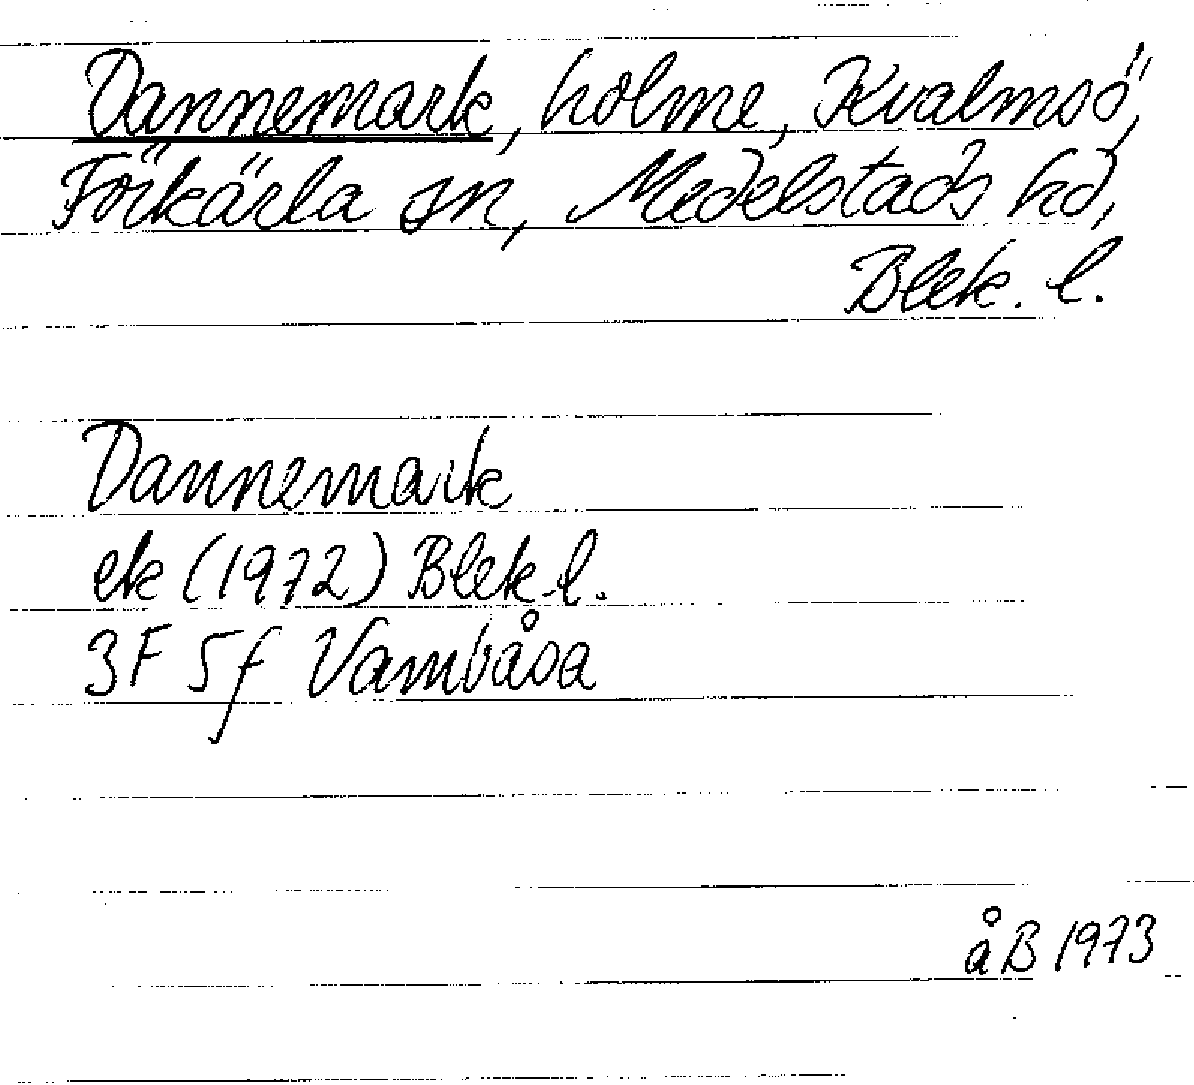 Dannemark, holme, Kvalmsö,
Förkärla sn, Medelstads hd,
Blek. l.
Dannemark
ek (1972) Blek. l.
3F 5f Vambåsa
åB 1973